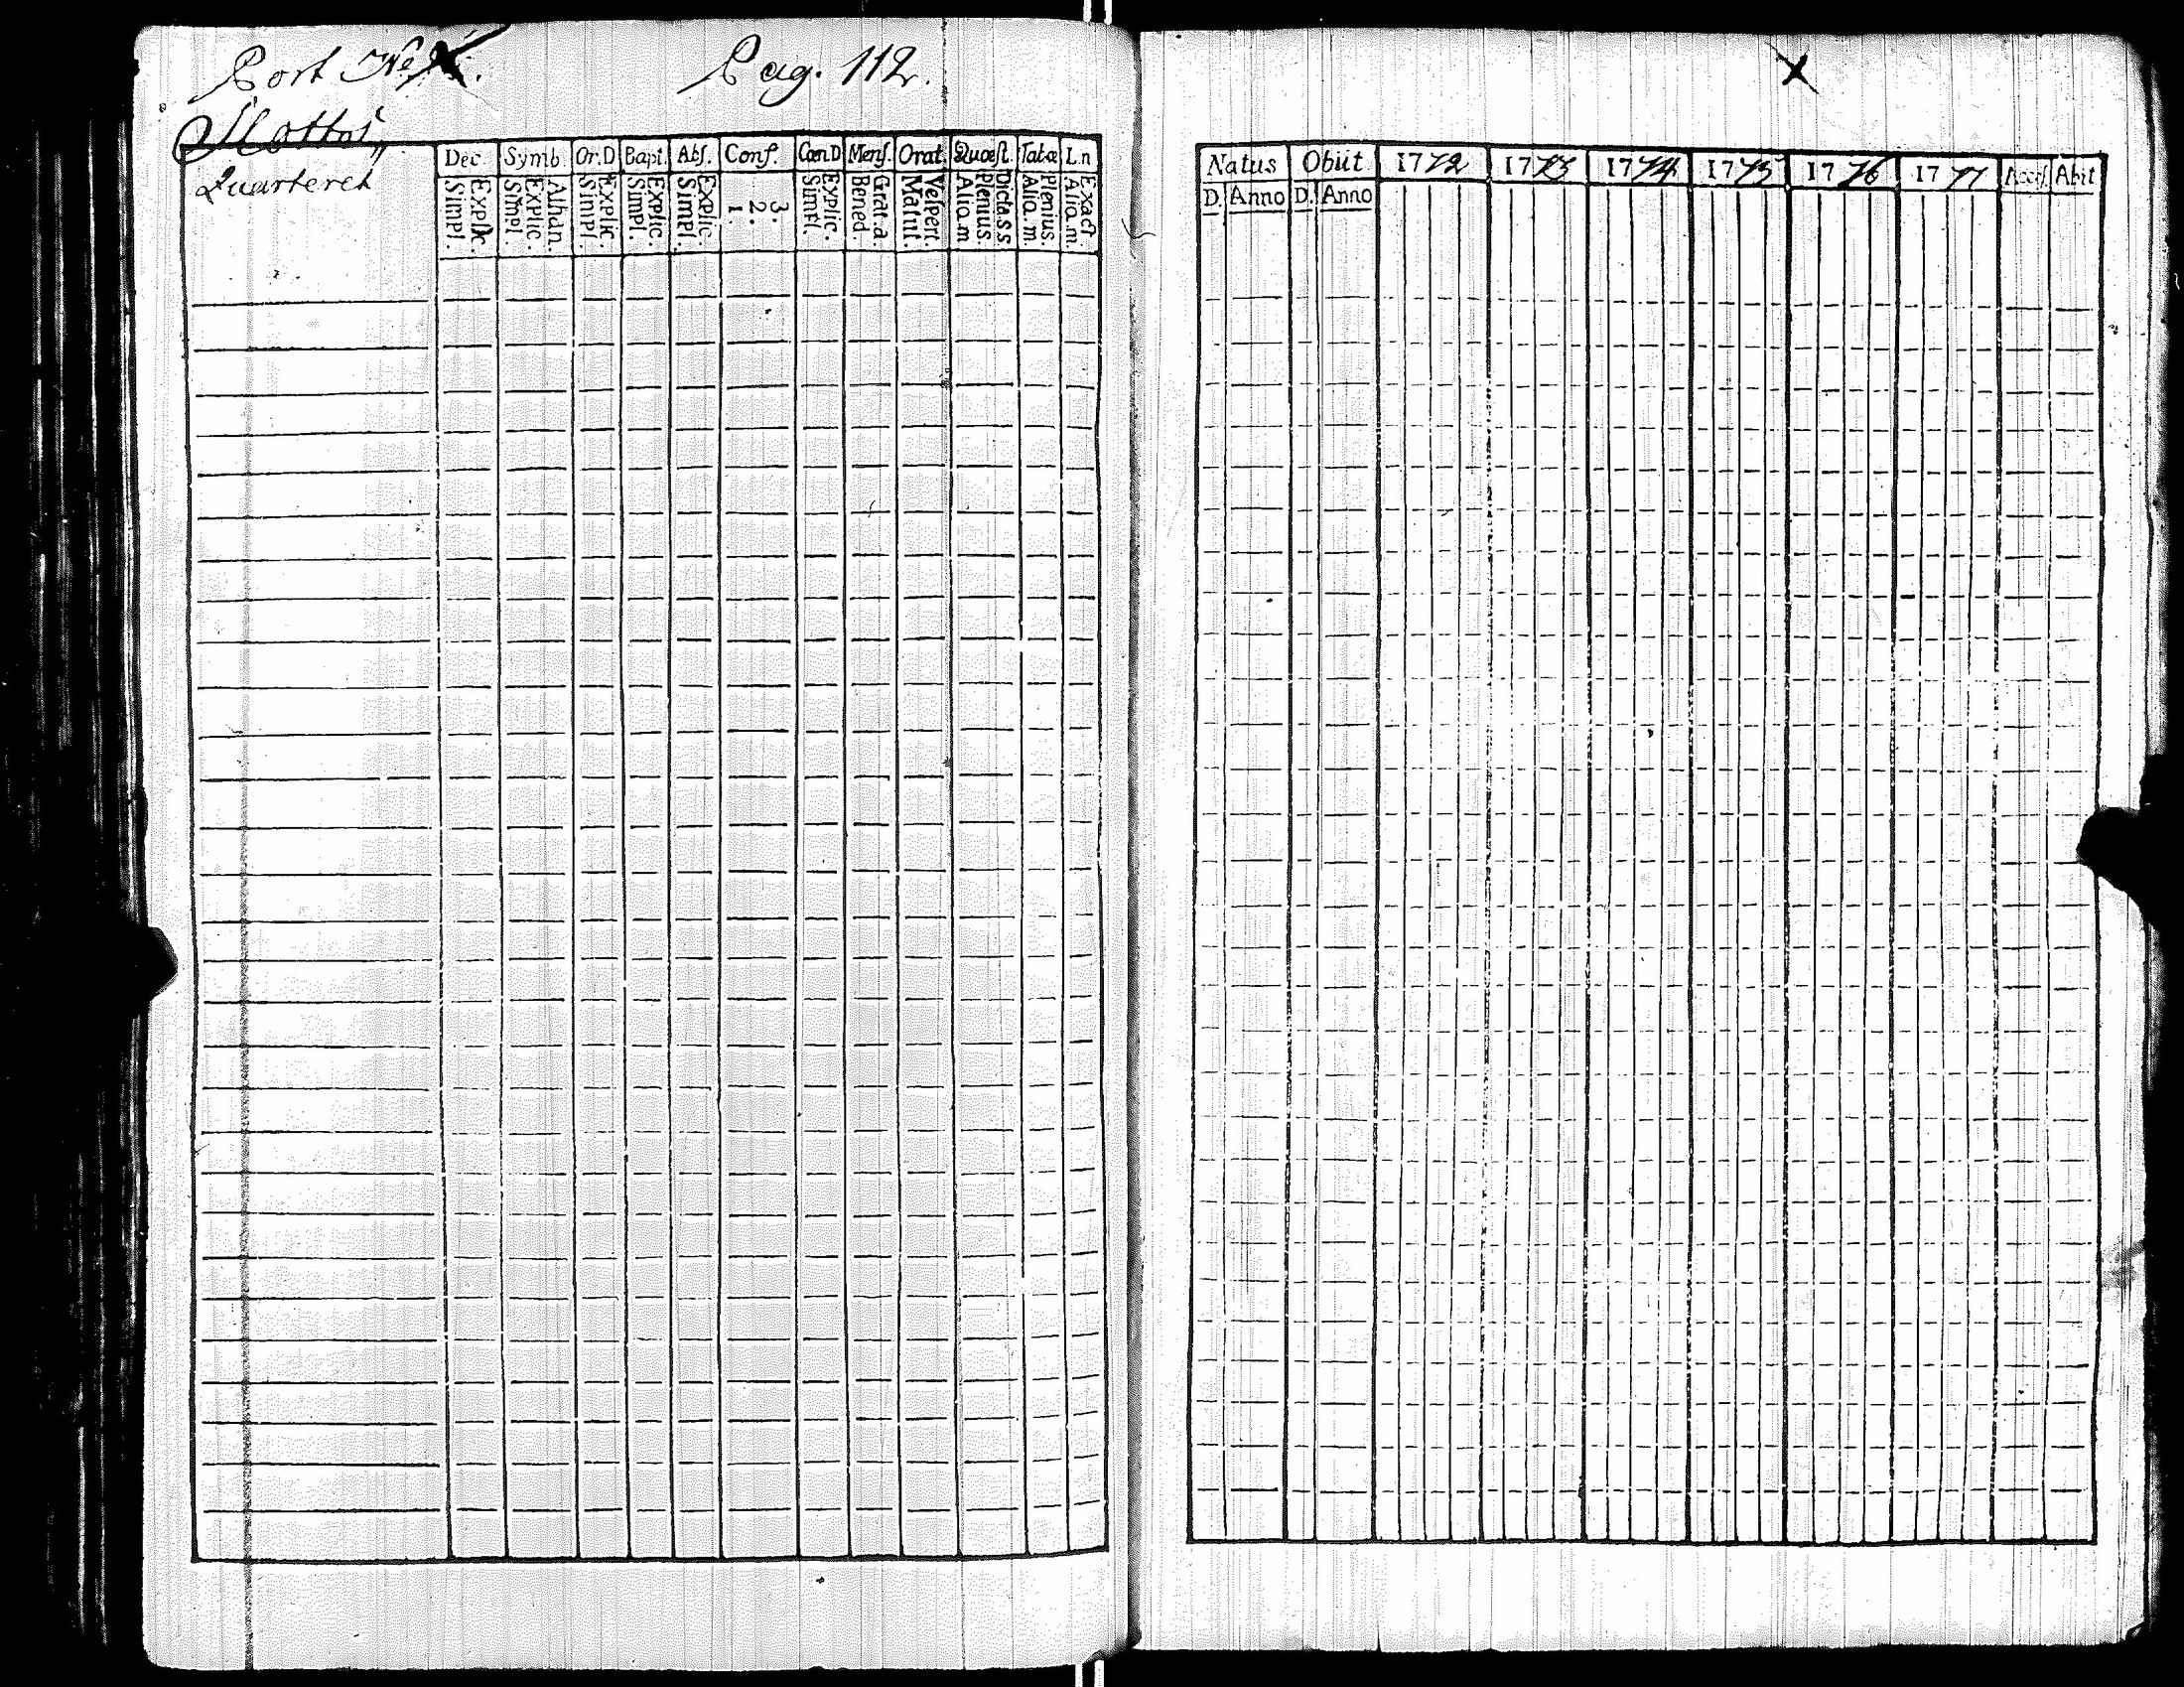 Port No X. Pag. 112.
Slottos,,
Quarteret
Dec. Symb. Or.D Bapt. Abs. Conf. Cœn D Mens. Orat. Quæst. Tabæ L.n
Simpl. Explic. Simpl. Explic. Athan. Simpl. Explic. Simpl. Explic. Simpl. Explic. 1. 2. 3. Simpl. Explic. Bened. Grat. a. Matut. Vespert. Aliq. m Plenius. Dicta. s s Aliq. m. Plenius. Aliq. m. Exact
X
Natus Obiit 1772 1773 1774 1775 1776 1777 Acces. Abiit
D. Anno D. Anno